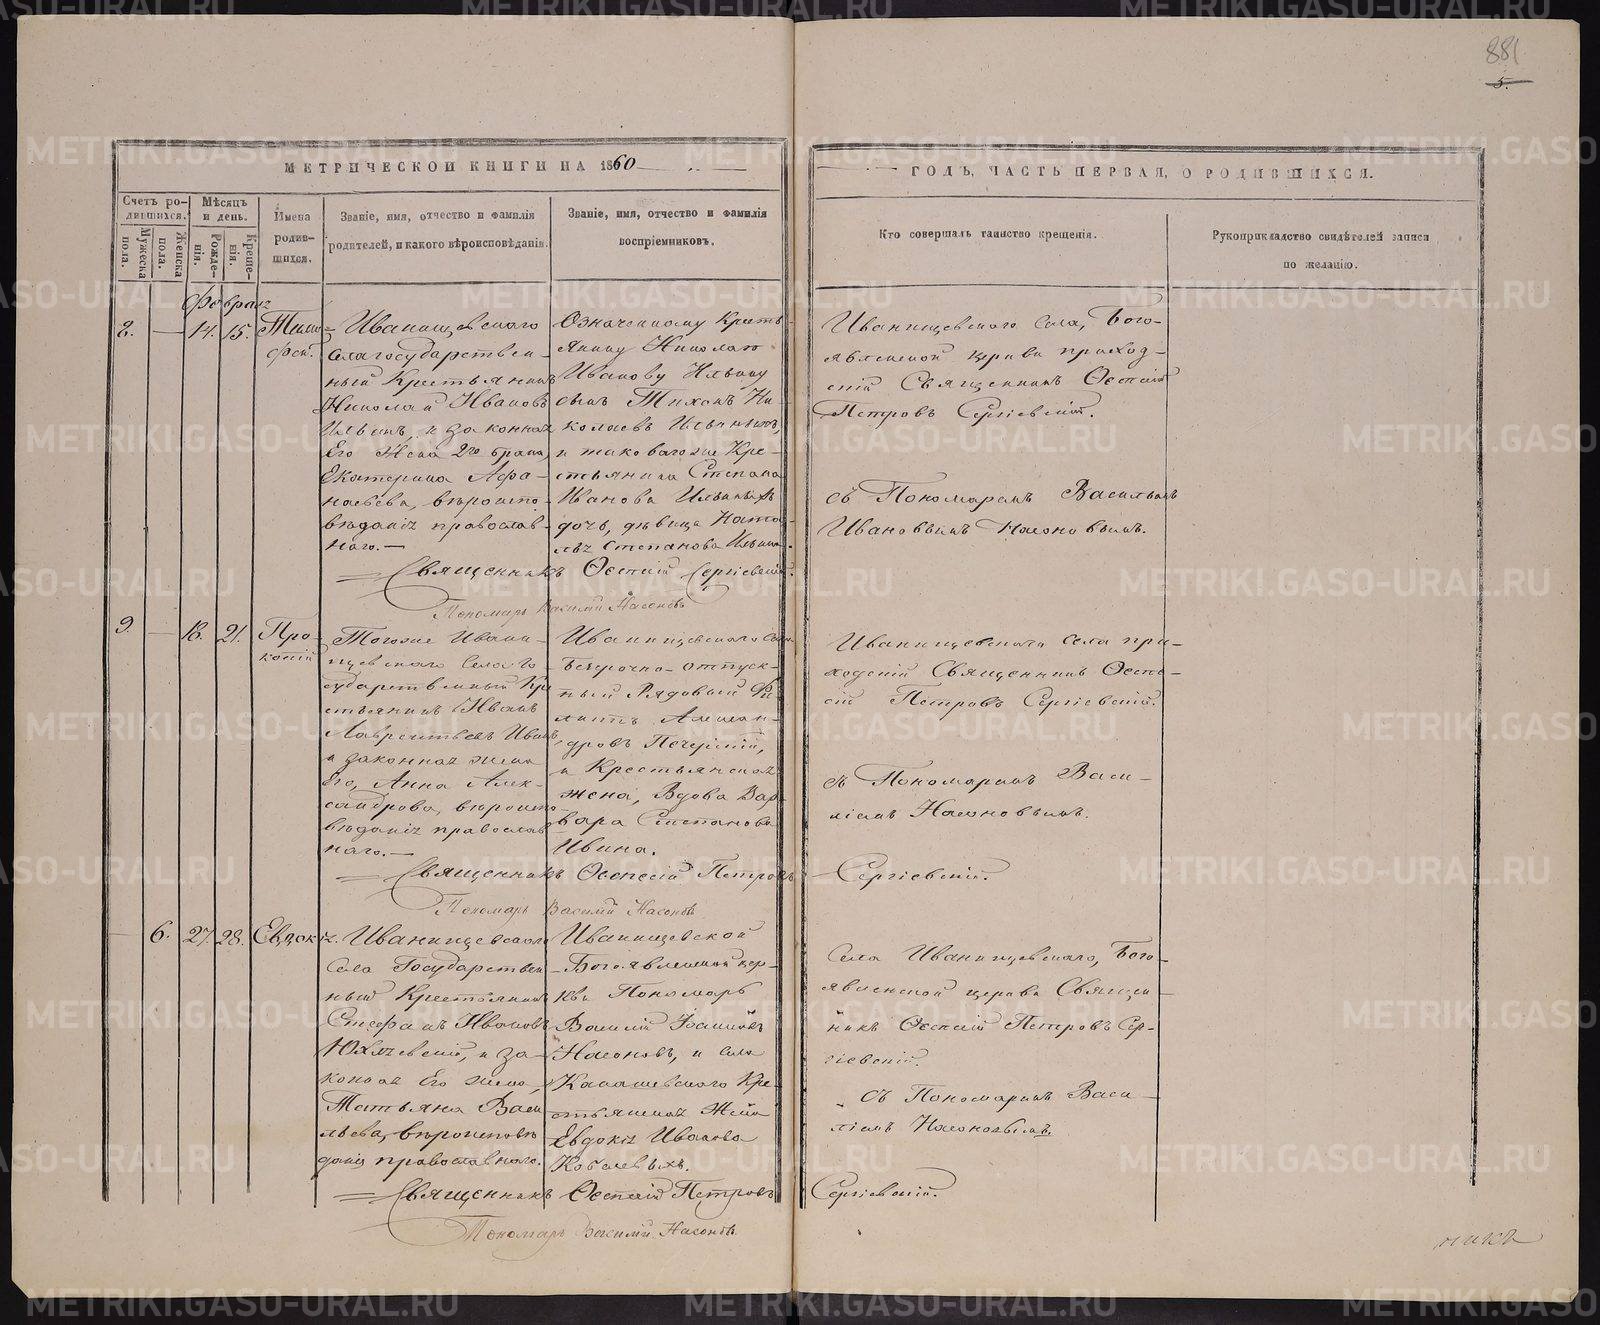 881
5.
МЕТРИЧЕСКОЙ КНИГИ НА 1860
ГОДЪ, ЧАСТЬ ПЕРВАЯ, О РОДИВШИХСЯ.
Счетъ ро-
дившихся.
Мужеска
пола.
Женска
пола.
Мѣсяцъ
и день.
Рожде-
нія.
Креще-
нія.
Имена
родив-
шихся.
Званіе, имя, отчество и фамилія
родителей, и какого вѣроисповѣданія.
Званіе, имя, отчество и фамилія
воспріемниковъ.
Кто совершалъ таинство крещенія.
Рукоприкладство свидѣтелей записи
по желанію.
Февраля
8. — 14. 15. Тимо-
фей.
Иванищевскаго
села государствен-
ный Крестьянинъ
Николай Ивановъ
Ильинъ, и законная
Его Жена 2го брака,
Екатерина Афа-
насьева, вѣроиспо-
вѣданія православ-
наго. —
Означенному Кресть-
янину Николаю
Иванову Ильину
сынъ Тихонъ Ни-
колаевъ Ильиныхъ,
и таковагоже Кре-
стьянина Степана
Иванова Ильиныхъ
дочь, дѣвица Ната-
лья Степанова Ильина.
Иванищевскаго Села, Бого-
явленской церкви приход-
скій Священникъ Евсевій
Петровъ Сергіевскій.
съ Пономаремъ Васильемъ
Ивановымъ Насоновымъ.
Священникъ Евсевій Сергіевскій.
Пономарь Василій Насоновъ
9. — 18. 21. Про-
копій
Тогоже Ивани-
щевскаго Села Го-
сударственный Кре
стьянинъ Иванъ
Лаврентьевъ Ивинъ
и законная жена
Его, Анна Алек-
сандрова, вѣроиспо-
вѣданія православ
наго. —
Иванищевскаго Села
Безсрочно-отпуск-
ный Рядовый Фи
липпъ Алексан-
дровъ Печерскій,
и Крестьянская
жена, Вдова Вар-
вара Степанова
Ивина.
Иванищевскаго Села при-
ходскій Священникъ Евсе-
вій Петровъ Сергіевскій.
съ Пономаремъ Васи-
ліемъ Насоновымъ.
Священникъ Евсевій Петровъ Сергіевскій.
Пономарь Василій Насоновъ
— 6. 27. 28. Евдокія.
Иванищевскаго
Села Государствен
ный Крестьянинъ
Стефанъ Ивановъ
и за-
конная Его жена,
Татьяна Васи
льева, вѣроисповѣ
данія православнаго.
Иванищевской
Богоявленской цер-
кви Пономарь
Василій Іоанновъ
Насоновъ, и села
Канашевскаго Кре-
стьянская Жена
Евдокія Иванова
Кобелевыхъ.
Села Иванищевскаго, Бого-
явленской церкви Священ
никъ Евсевій Петровъ Сер-
гіевскій.
съ Пономаремъ Васи-
ліемъ Насоновымъ.
Священникъ Евсевій Петровъ Сергіевскій.
Пономарь Василій Насоновъ
METRIKI.GASO-URAL.RU